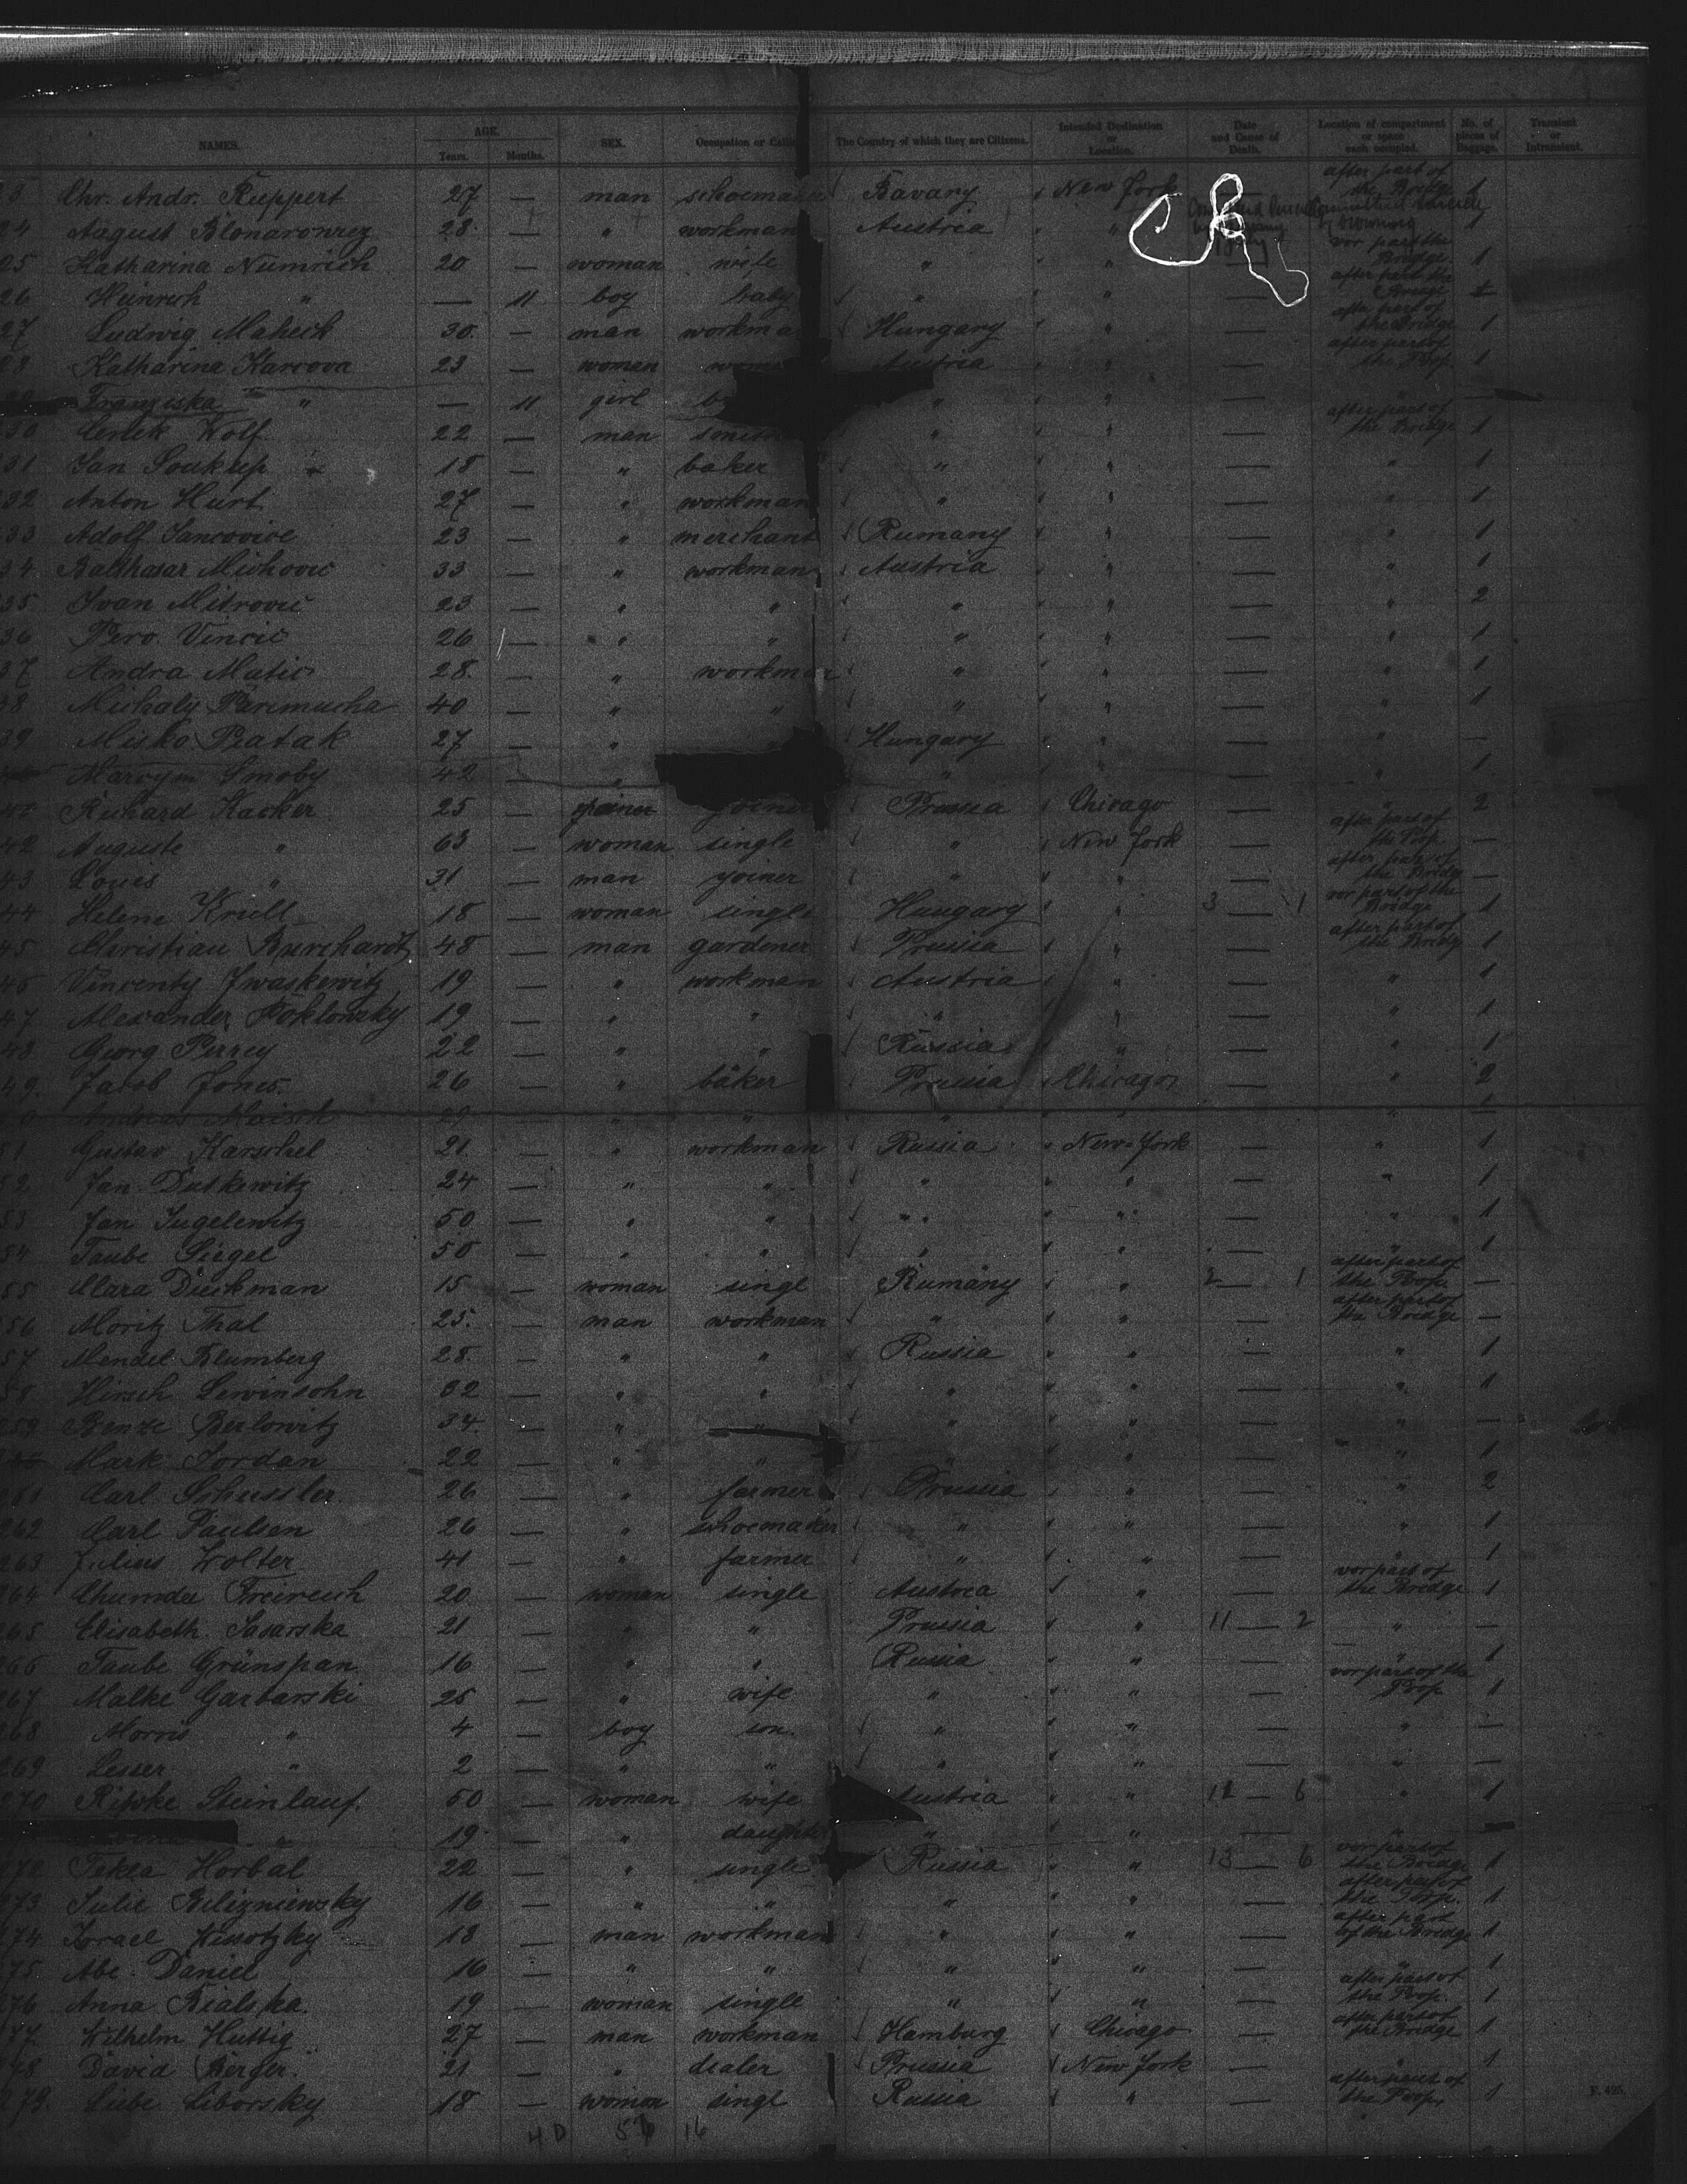 NAMES. AGE. Years. Months. SEX. Occupation or The Country of which they are Citizens. Intended Destination or Location. Date and Cause of Death. Location of compartment or space each occupied. No. of pieces of Baggage. Transient or Intransient.
Chr. Andr. Ruppert 27 — man Bavary New York after part of the Bridge 1
24 August 28 — " workman Austria " " 1
25 Katharina Numrich 20 — woman wife " " — vor part the Bridge 1
26 Heinrich " — 11 boy baby " " — after part the
27 Ludwig Maheck 30 — man Hungary " — after part of the Bridge 1
28 Katharina Karcova 23 — woman Austria " — after part of the Poop 1
Franziska " — 11 girl " " — —
30 Wolf 22 — man " " — after part of the Bridge 1
31 Jan Soukup 18 — " baker " " — " 1
32 Anton Hurt 27 — " workman " " — " 1
33 Adolf Jancovice 23 — " merchant Rumany " — " 1
34 Balthasar 33 — " workman Austria " — " 1
35 Ivan Mitrovic 23 — " " " " — " 2
36 Pero Vincic 26 — " " " " — " 1
37 Andra Matic 28 — " workman " " — " 1
38 Michaly 40 — " " " " — " 1
39 Misko Piatak 27 — " Hungary " — " —
Smoby 42 — " " " — " 1
41 Richard Kacker 25 — joiner Prussia Chicago — " 2
42 Auguste " 63 — woman single " New York — after part of the Poop —
43 Louis " 31 — man joiner " " — after part of the Bridge —
44 Helene Krull 18 — woman single Hungary " 3 — 1 vor part of the Bridge 1
45 Christian Burchardt 48 — man gardener Prussia " — after part of the Bridge 1
46 Vincenty Iwaskewitz 19 — " workman Austria " — " 1
47 Alexander 19 — " " " " — " 1
48 Georg Perrey 22 — " " Russia " — " 1
49. Jacob Jones 26 — " bäker Prussia Chicago — " 2
Andreas 29 — " " " " — " 1
51 Gustav Karschel 21 — " workman Russia New-York — " 1
52 Jan Duskewitz 24 — " " " " — " 1
53 Jan Jugelewitz 50 — " " " " — " 1
54 Taube Siegel 50 — " " " " — " 1
55 Clara Dieckman 15 — woman singl Rumäny " 2 — 1 after part of the Poop —
56 Moritz Thal 25. — man workman " " — after part of the Bridge —
57 Mendel Blumberg 28. — " " Russia " — " 1
58 Hirsch Lewinsohn 32 — " " " " — " 1
259 Benze Berlowitz 34 — " " " " — " —
Mark Jordan 22 — " " " " — " 1
261 Carl Schussler 26 — " farmer Prussia " — " 2
262 Carl Paulsen 26 — " shoemaker " " — " 1
263 Julius Wolter 41 — " farmer " " — " 1
264 Freireich 20 — woman single Austria " — vor part of the Bridge 1
265 Elisabeth Sasarska 21 — " " Prussia " 11 — 2 " —
266 Taube Grünspan 16 — " " Russia " — " 1
267 Malke Garbarski 25 — " wife " " — vor part of the Poop 1
268 Morris " 4 — boy son " " — " —
269 Lesser " 2 — " " " " — " —
270 Riwke Steinlauf 50 — woman wife Austria " 11 — 6 " 1
" 19 — " daughter " " — " —
272 Tekla Horbal 22 — " single Russia " 13 — 6 vor part of the Bridge 1
273 Julie Bilizniewsky 16 — " " " " — after part of the Poop. 1
274 Israel Wisotzky 18 — man workman " " — after part of the Bridge 1
275. Abe Daniel 16 — " " " " — " 1
276 Anna Bialska 19 — woman single " " — after part of the Poop. 1
277. Wilhelm Huttig 27 — man workman Hamburg Chicago — after part of the Bridge 1
278 David Berger 21 — " dealer Prussia New York — " 1
279. Liebe Liborsky 18 — woman singl Russia " — after part of the Poop, 1
F. 425.
16